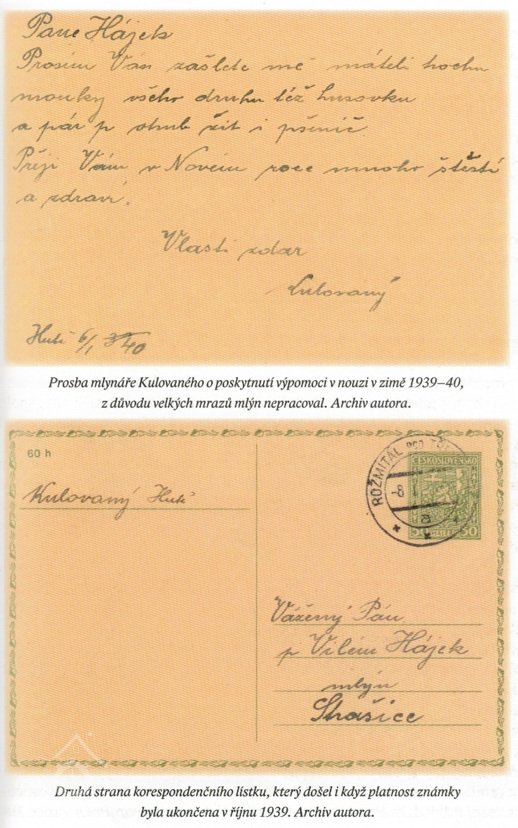 Pane Hájek
Prosím Vás zašlete mě máteli trochu
mouky všeho druhu též
a pár p otrub žit i pšenič
Přeji Vám v Novém roce mnoho štěstí
a zdraví.
Vlasti zdar
Kulovaný
Hutě 6/1 40
Prosba mlynáře Kulovaného o poskytnutí výpomoci v nouzi v zimě 1939–40,
z důvodu velkých mrazů mlýn nepracoval. Archiv autora.
60 h
Kulovaný Hutě
ROŽMITÁL POD
-8. I.
a
ČESKOSLOVENSKO
50 50
Vážený Pán
p Vilém Hájek
mlýn
Strašice
Druhá strana korespondenčního lístku, který došel i když platnost známky
byla ukončena v říjnu 1939. Archiv autora.